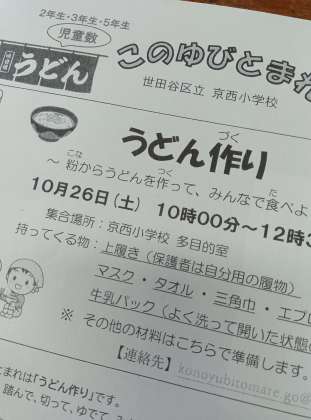 2年生・3年生・5年生
児童数
うどん
このゆびとまれ
世田谷区立 京西小学校
うどん作り
づく
～ 粉からうどんを作って、みんなで食べよ
こな
つく
た
10月26日(土) 10時00分～12時3
集合場所：京西小学校 多目的室
持ってくる物：上履き（保護者は自分用の履物）
マスク・タオル・三角巾・エプ
牛乳パック（よく洗って開いた状態
※ その他の材料はこちらで準備します。
【連絡先】 konoyubitomare.go@
まれは「うどん作り」です。
踏んで、切って、ゆでて、